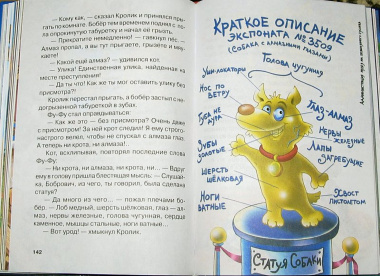 — Кому как, — сказал Кролик и принялся пры-
гать по комнате. Бобёр тем временем поднял с по-
ла прокинутую табуретку и сел на неё.
— Прекратите немедленно! — гневно —
Алмаз пропал, а вы тут прыгаете, грызёте и мяу-
кает!
— Какой ещё алмаз? — удивился кот.
— Улика! Единственная улика, найденная на
месте преступления!
— Да ты что! Как же ты мог оставить улику без
присмотра?!
Кролик перестал прыгать, а бобёр застыл с недо-
грызенной табуреткой в зубах.
Фу-Фу стал оправдываться:
— Как же это — без присмотра? Очень даже
с присмотром! За ней крот следил! Я ему строго-
настрого велел, чтобы не спускал с алмаза глаз.
А теперь ни крота, ни алмаза!..
Кот, всхлипывая, повторил последние слова
Фу-Фу:
— Ни крота, ни алмаза, ни крота, ни... — Вдруг
ему в голову пришла блестящая мысль: — Слушай-
ка, Бобрович, из чего, ты говорил, была сделана
статуя?
— Да много из чего... — пожал плечами бо-
бёр. — Лоб медный, шерсть шёлковая, глаз — ал-
маз, нервы железные, голова чугунная, сердце
каменное, мышцы стальные, ноги ватные...
— Вот урод! — хмыкнул Кролик.
142
КРАТКОЕ ОПИСАНИЕ
ЭКСПОНАТА № 3509
(СОБАКА С АЛМАЗНЫМИ ГЛАЗАМИ)
Голова чугунная
Уши-локаторы
Нос по
ветру
Глаз-алмаз
Губа не
дура
Нервы
железные
Зубы
золотые
Лапы
загребущие
Шерсть
шёлковая
Хвост
пистолетом
Ноги
ватные
Статуя Собаки